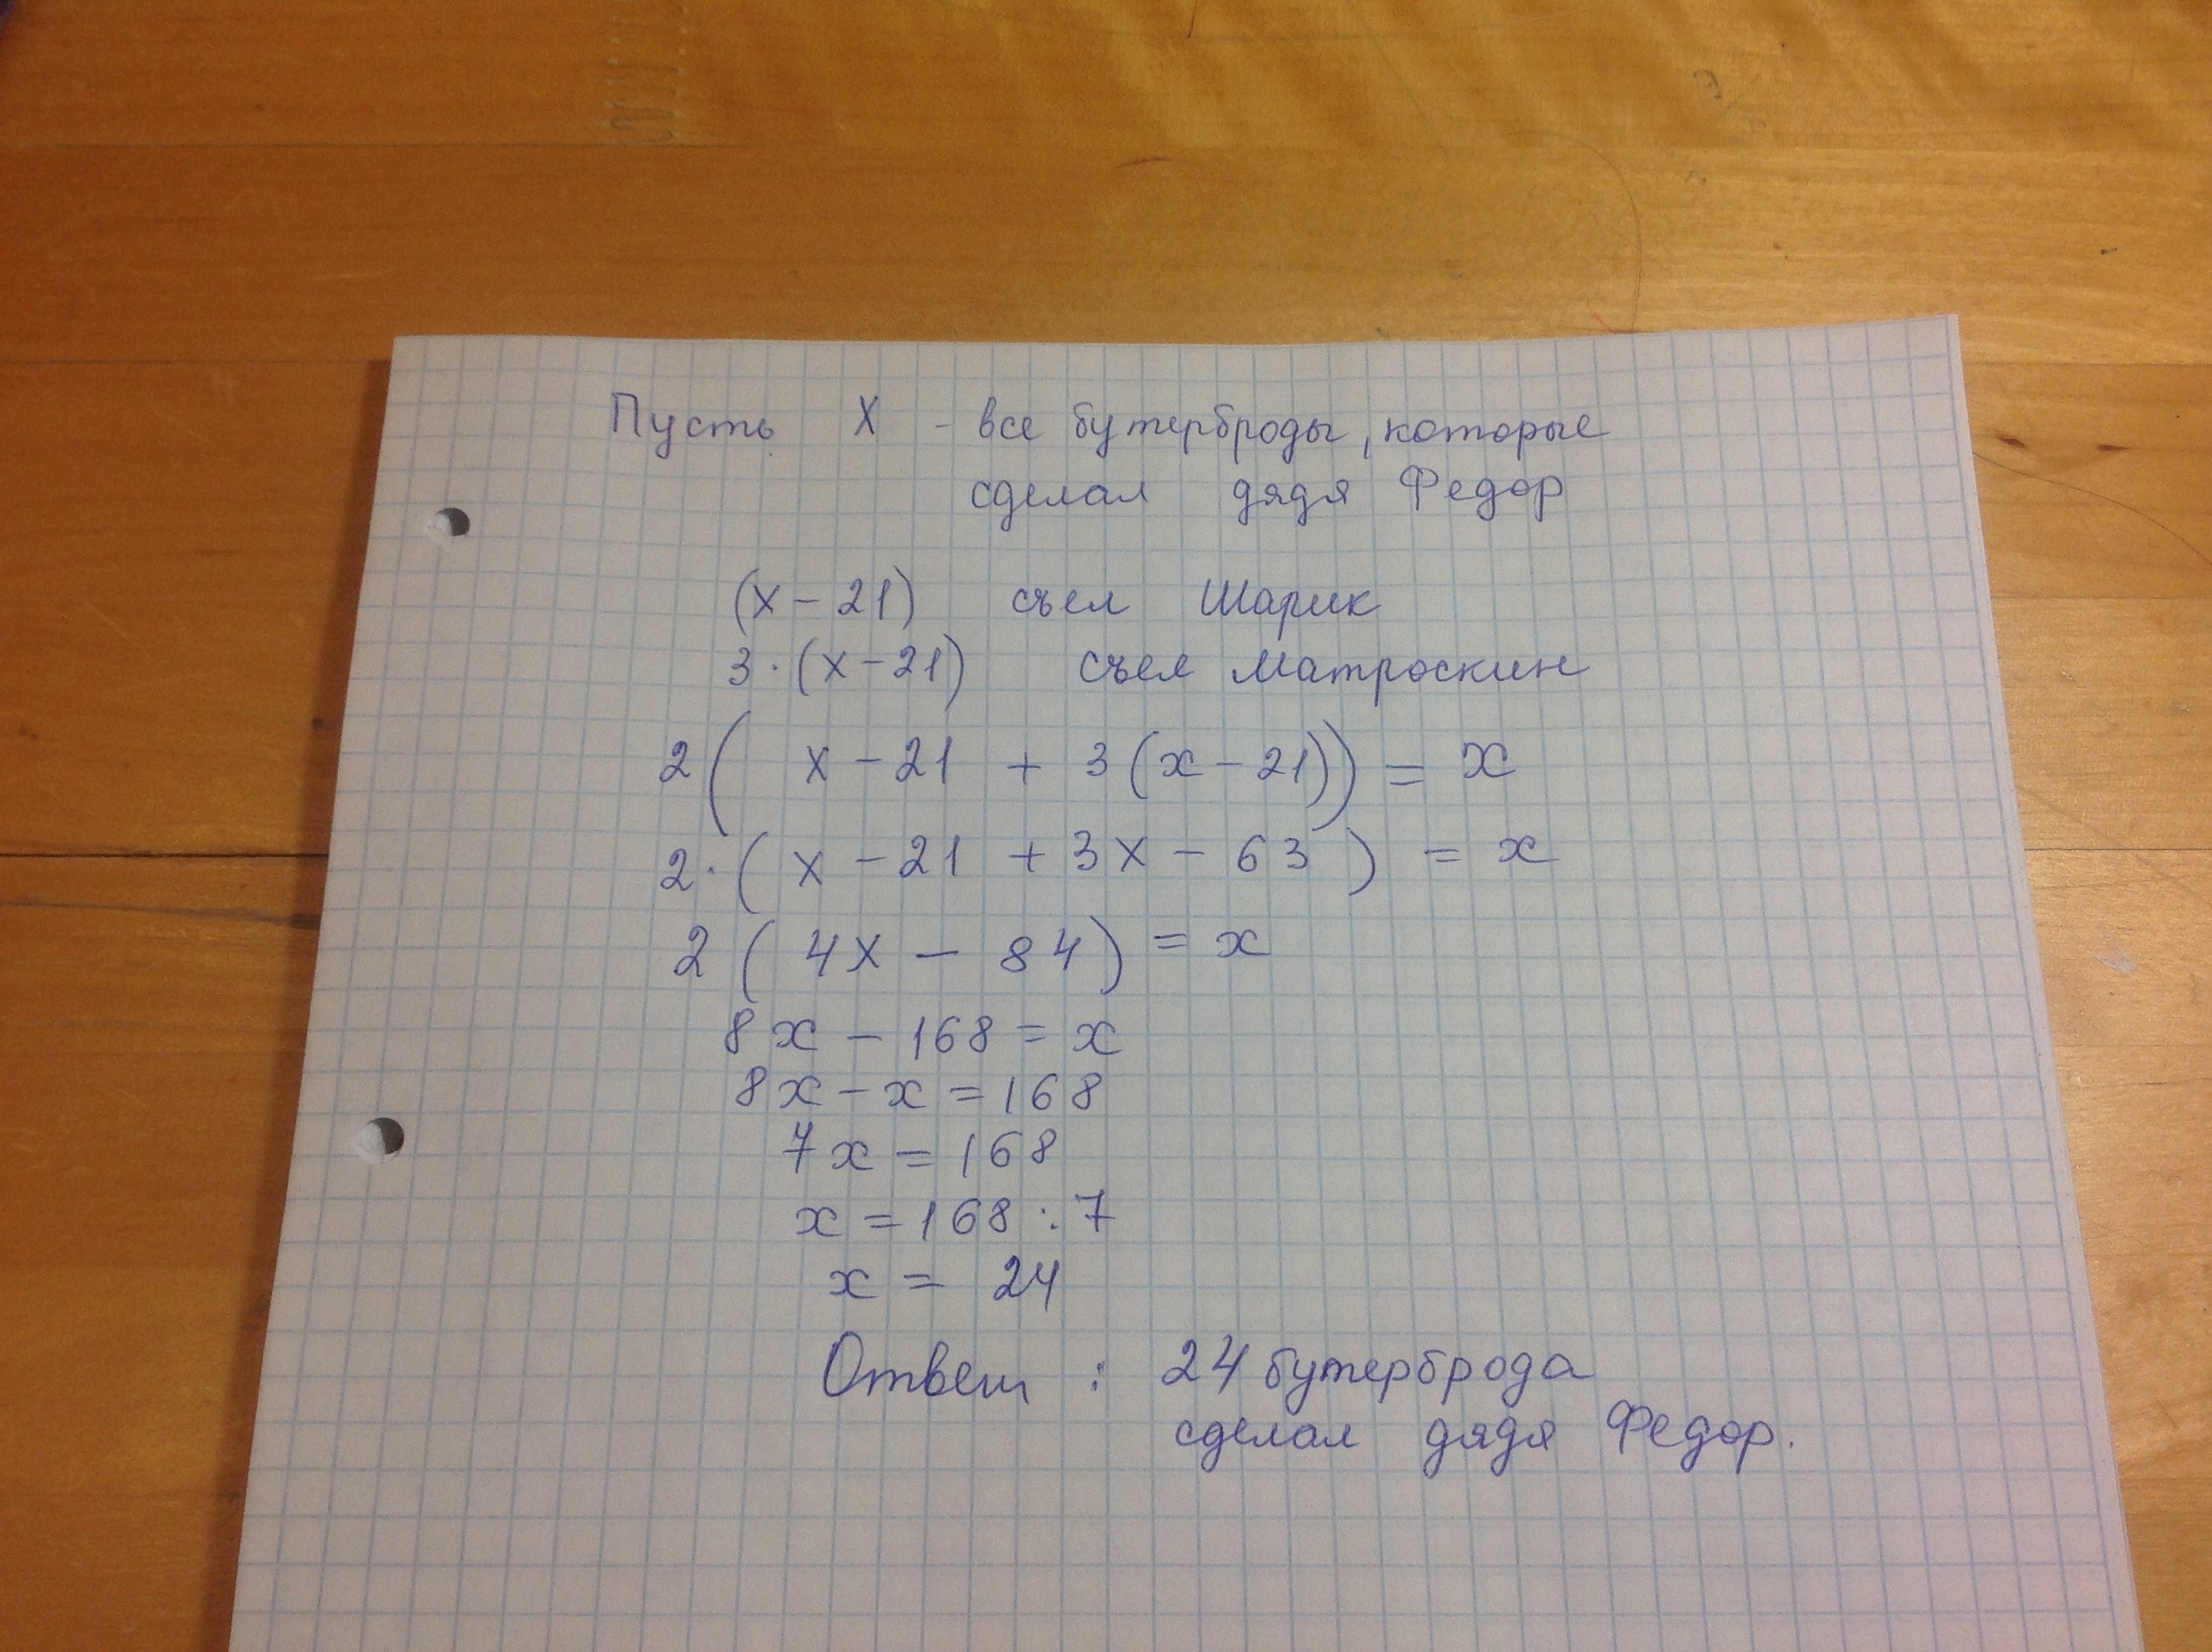 Пусть X - все бутерброды, которые
сделал дядя Федор
(x - 21) съел Шарик
3 · (x - 21) съел Матроскин
2 ( x - 21 + 3 (x - 21)) = x
2 · ( x - 21 + 3x - 63 ) = x
2 ( 4x - 84) = x
8x - 168 = x
8x - x = 168
7x = 168
x = 168 : 7
x = 24
Ответ : 24 бутерброда
сделал дядя Федор.